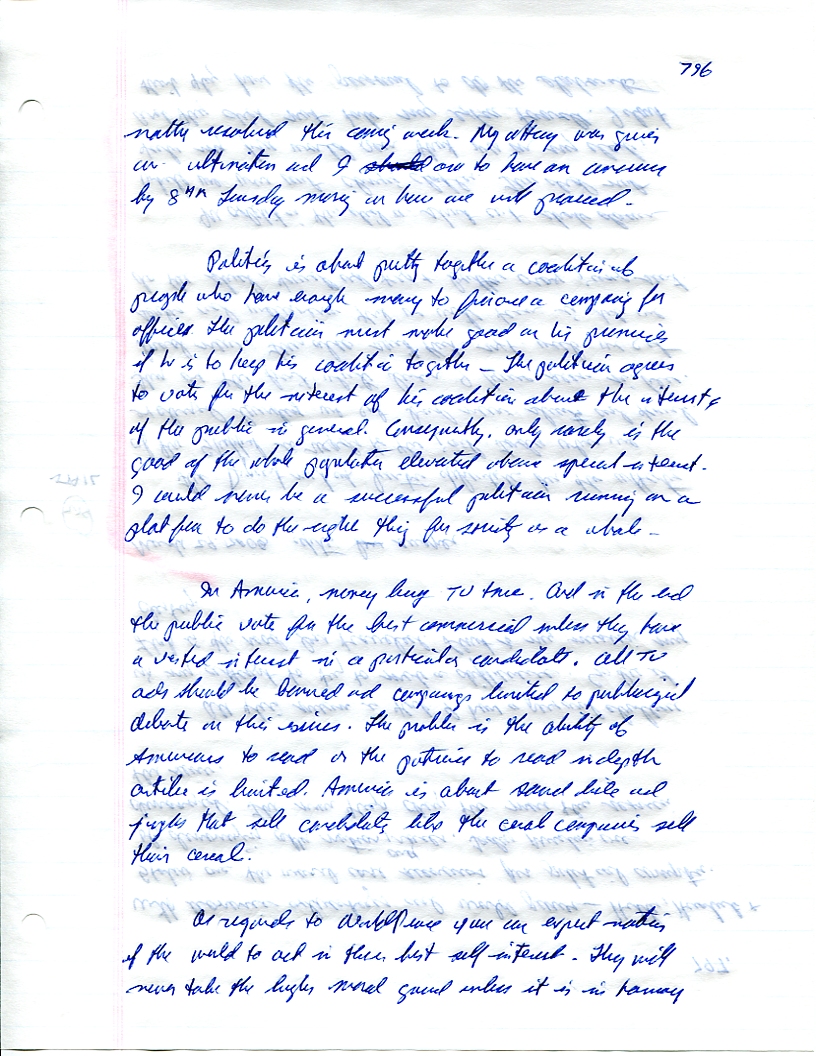 796
matter resolved this coming week. My attorney was given
an ultimatum and I should am to have an answer
by 8 AM Tuesday morning on how we will proceed.
Politics is about putting together a coalition of
people who have enough money to finance a campaign for
office. The politician must make good on his promises
if he is to keep his coalition together - The politician agrees
to vote for the interest of his coalition above the interests
of the public in general. Consequently, only rarely is the
good of the whole population elevated above special interest.
I could never be a successful politician running on a
platform to do the right thing for society as a whole -
In America, money buys TV time. And in the end
the public vote for the best commercial unless they have
a vested interest in a particular candidate. All TV
ads should be banned and campaigns limited to publicized
debate on this issues. The problem is the ability of
Americans to read or the patience to read indepth
articles is limited. America is about sound bite and
jingles that sell candidates like the cereal companies sell
their cereal.
As regards to World Peace you can expect nations
of the world to act in their best self interest. They will
never take the higher moral ground unless it is in harmony